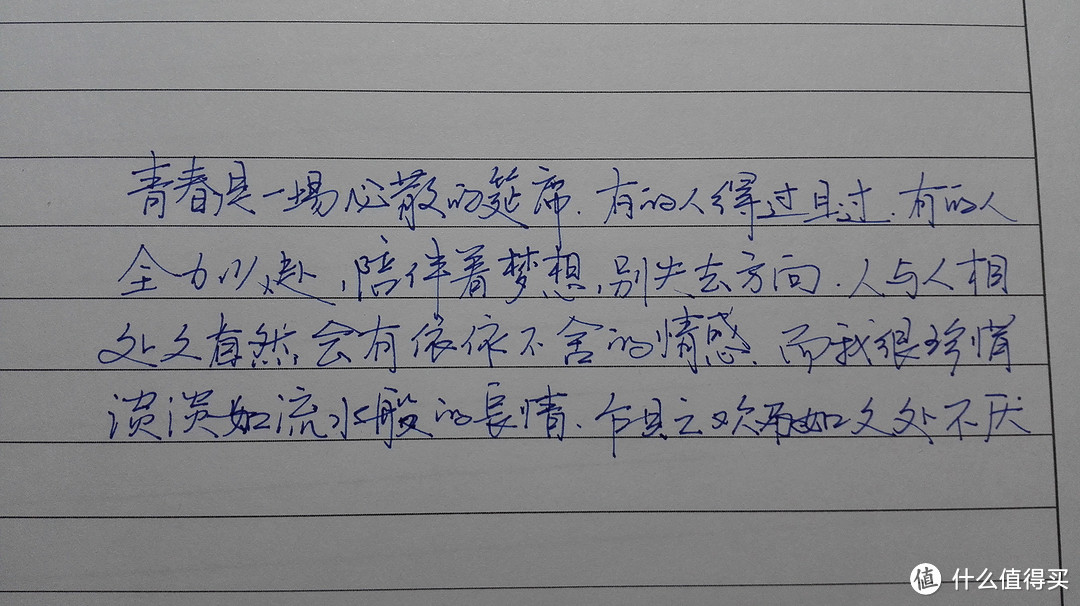 青春是一場必散的筵席.有的人得过且过.有的人
全力以赴,陪伴着梦想,别失去方向.人与人相
处久自然会有依依不舍的情感.而我很珍惜
淡淡如流水般的长情.乍见之欢不如久处不厌
值 什么值得买